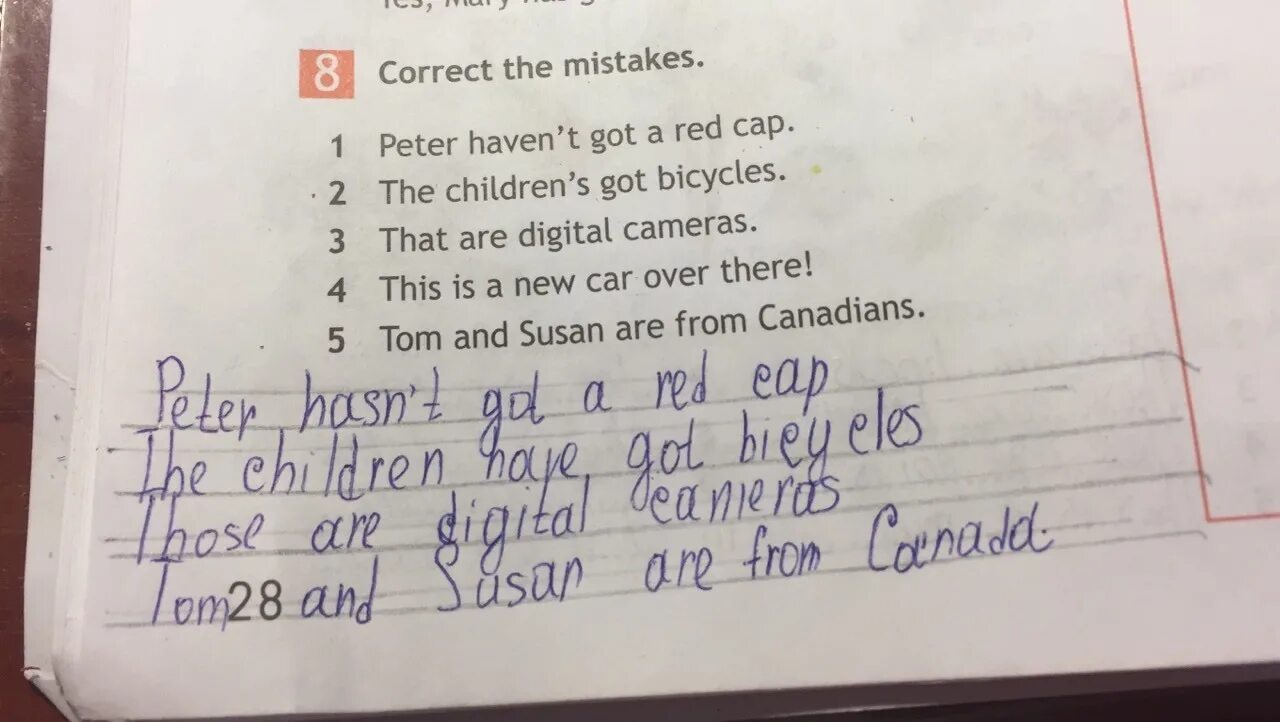 8 Correct the mistakes.
1 Peter haven't got a red cap.
2 The children's got bicycles.
3 That are digital cameras.
4 This is a new car over there!
5 Tom and Susan are from Canadians.
Peter hasn't got a red cap
The children have got bicycles
Those are digital cameras
Tom and Susan are from Canada.
28